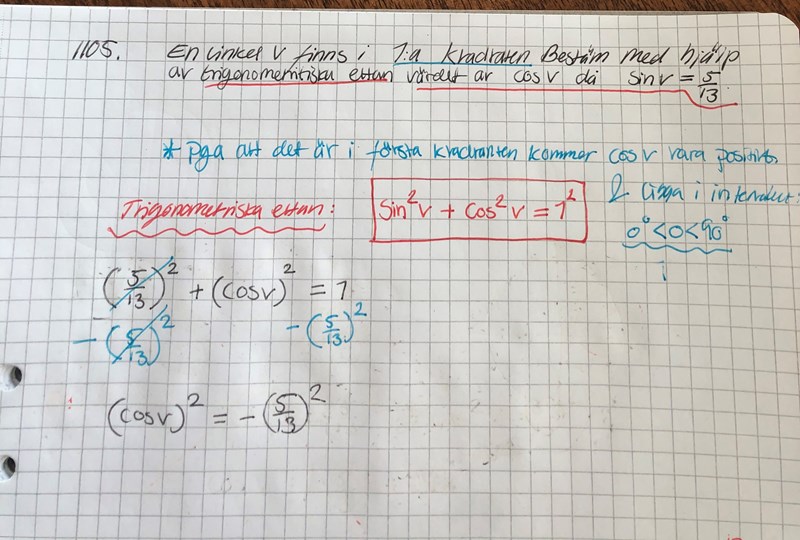 1105. En vinkel v finns i 1:a kvadraten Bestäm med hjälp
av trigonometritiska ettan värdet av cos v då sin v = 5/13
* Pga att det är i första kvadranten kommer cos v vara positivt
& ligga i intervallet:
0° < 0 < 90°
Trigonometriska ettan: Sin²v + Cos²v = 1²
(5/13)² + (cos v)² = 1
- (5/13)² - (5/13)²
(cos v)² = - (5/13)²